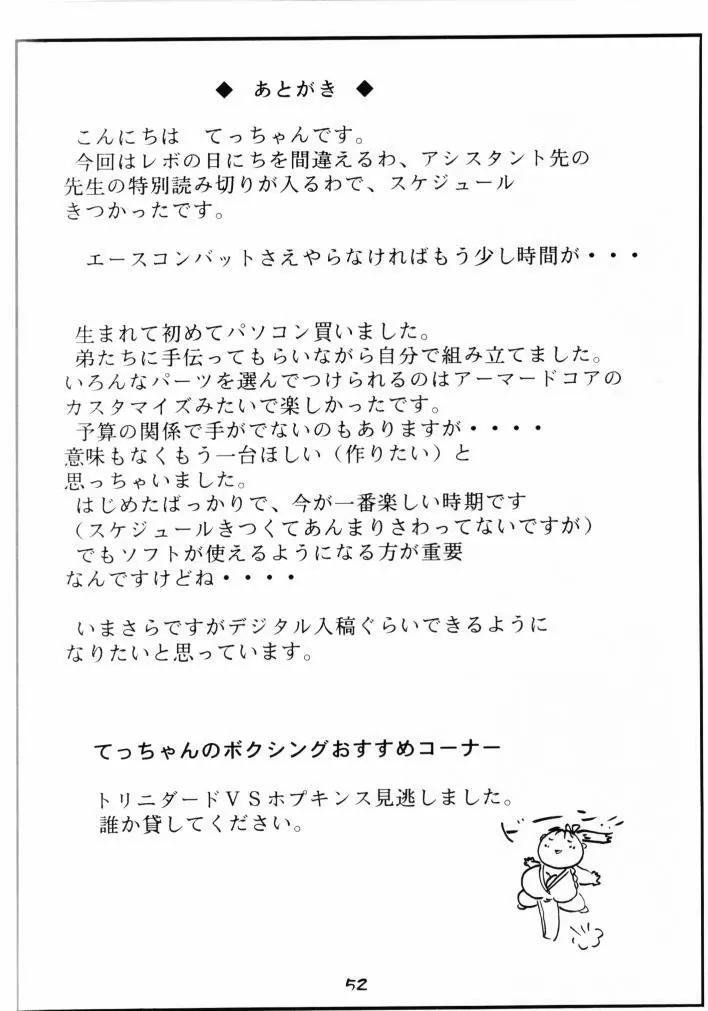 ◆ あとがき ◆
こんにちは てっちゃんです。
今回はレボの日にちを間違えるわ、アシスタント先の
先生の特別読み切りが入るわで、スケジュール
きつかったです。
エースコンバットさえやらなければもう少し時間が・・・
生まれて初めてパソコン買いました。
弟たちに手伝ってもらいながら自分で組み立てました。
いろんなパーツを選んでつけられるのはアーマードコアの
カスタマイズみたいで楽しかったです。
予算の関係で手がでないのもありますが・・・・
意味もなくもう一台ほしい（作りたい）と
思っちゃいました。
はじめたばっかりで、今が一番楽しい時期です
（スケジュールきつくてあんまりさわってないですが）
でもソフトが使えるようになる方が重要
なんですけどね・・・・
いまさらですがデジタル入稿ぐらいできるように
なりたいと思っています。
てっちゃんのボクシングおすすめコーナー
トリニダードＶＳホプキンス見逃しました。
誰か貸してください。
52